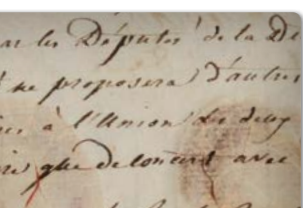 ar les Députés de la De
ne proposera d'autres
à l'Union des deux
que de concert avec